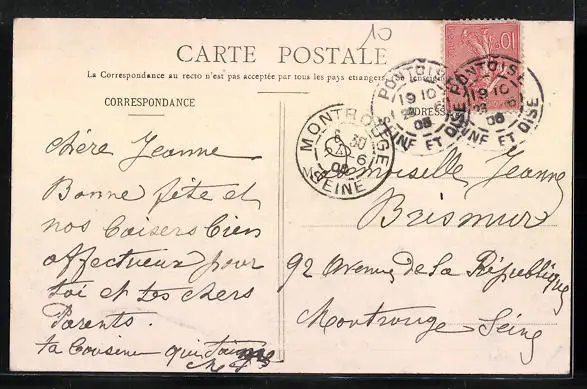 10
CARTE POSTALE
La Correspondance au recto n'est pas acceptée par tous les pays étrangers
CORRESPONDANCE
ADRESSE
10
PONTOISE
19 10
23 6
06
SEINE ET OISE
PONTOISE
19 10
23 6
06
SEINE ET OISE
MONTROUGE
6 30
24-6
06
SEINE
chère Jeanne
Bonne fête et
nos baisers bien
affectueux pour
toi et tes chers
Parents.
ta Cousine qui
Mademoiselle Jeanne
Brismur
92 Avenue de la République
Montrouge Seine